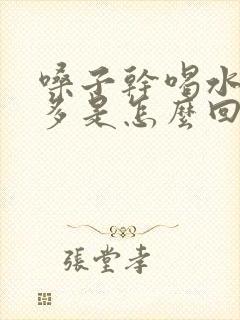 嗓子幹喝水
多是怎麼回
張堂孝